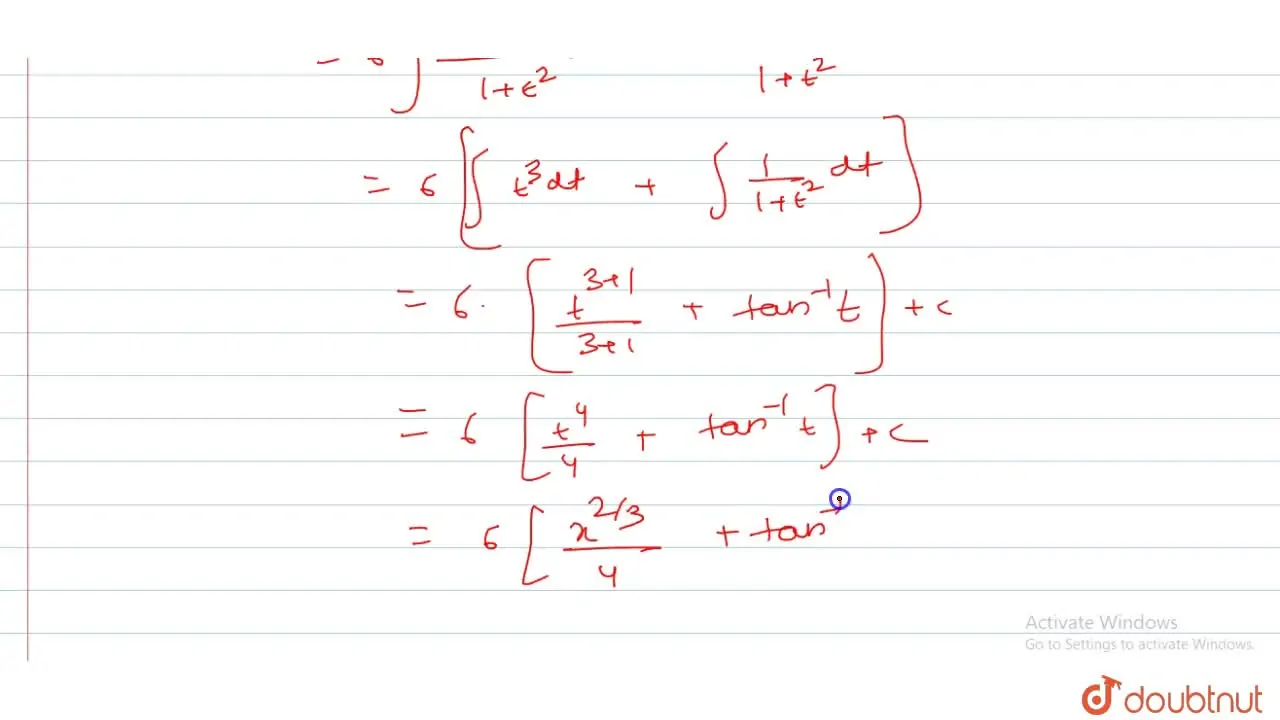 1+t² 1+t²
= 6 [∫ t³ dt + ∫ 1/(1+t²) dt]
= 6 · [t³⁺¹/(3+1) + tan⁻¹ t] + c
= 6 [t⁴/4 + tan⁻¹ t] + c
= 6 [x^(2/3)/4 + tan⁻
Activate Windows
Go to Settings to activate Windows.
doubtnut